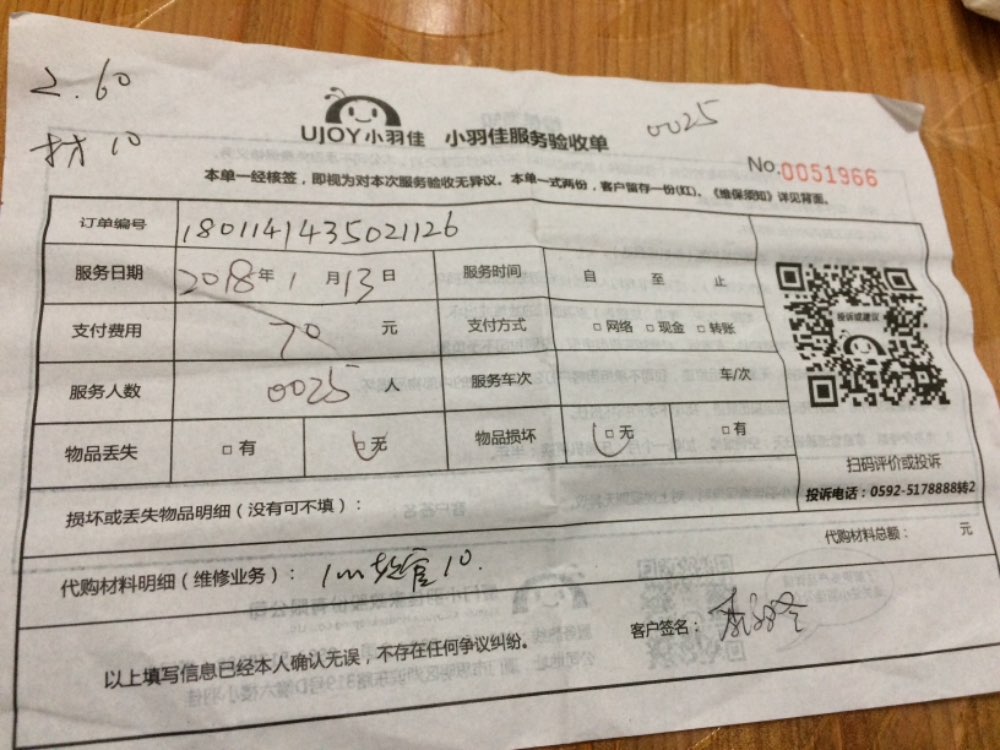 2.60
找10
UJOY小羽佳 小羽佳服务验收单
0025
No.0051966
本单一经核签，即视为对本次服务验收无异议。本单一式两份，客户留存一份(红)。《维保须知》详见背面。
订单编号 1801141435021126
服务日期 2018年1月13日 服务时间 自 至 止
支付费用 70 元 支付方式 □网络 □现金 □转账
服务人数 0025 人 服务车次 车/次
物品丢失 □有 □无 物品损坏 □无 □有
投诉或建议
扫码评价或投诉
投诉电话：0592-5178888转2
损坏或丢失物品明细（没有可不填）：
代购材料总额： 元
代购材料明细（维修业务）：1m软管10.
客户签名：
以上填写信息已经本人确认无误，不存在任何争议纠纷。